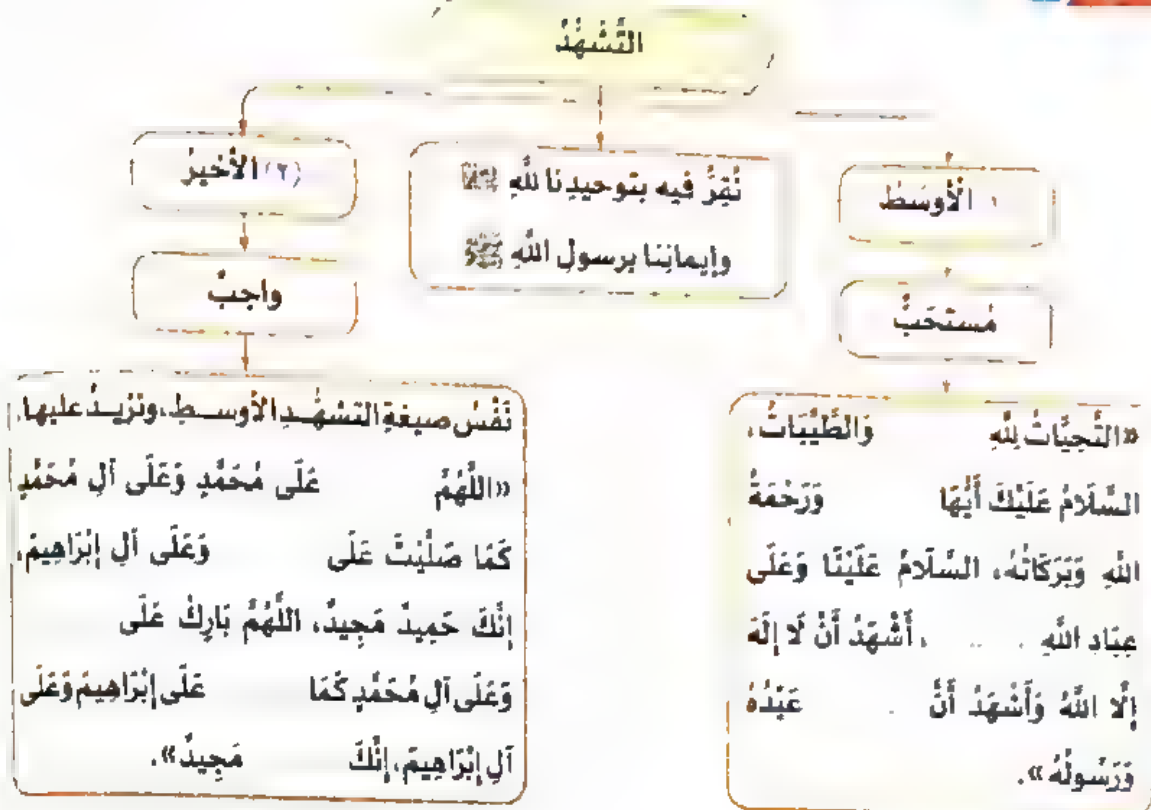 التَّشَهُّدُ
١ الْأَوسَطُ
مُستَحَبٌّ
«التَّحِيَّاتُ لِلَّهِ وَالطَّيِّبَاتُ،
السَّلَامُ عَلَيْكَ أَيُّهَا وَرَحْمَةُ
اللهِ وَبَرَكَاتُهُ، السَّلَامُ عَلَيْنَا وَعَلَى
عِبَادِ اللَّهِ . .. ، أَشْهَدُ أَنْ لَا إِلَهَ
إِلَّا اللَّهُ وَأَشْهَدُ أَنَّ . عَبْدُهُ
وَرَسُولُهُ».
نُقِرُّ فيه بتوحيدِنا للهِ
وإيمانِنا برسولِ اللهِ ﷺ
(٢) الْأَخيرُ
واجبٌ
نَفْسُ صيغةِ التشهُّدِ الأوسطِ، ونَزيدُ عليها:
«اللَّهُمَّ عَلَى مُحَمَّدٍ وَعَلَى آلِ مُحَمَّدٍ
كَمَا صَلَّيْتَ عَلَى وَعَلَى آلِ إِبْرَاهِيمَ،
إِنَّكَ حَمِيدٌ مَجِيدٌ، اللَّهُمَّ بَارِكْ عَلَى
وَعَلَى آلِ مُحَمَّدٍ كَمَا عَلَى إِبْرَاهِيمَ وَعَلَى
آلِ إِبْرَاهِيمَ، إِنَّكَ مَجِيدٌ».